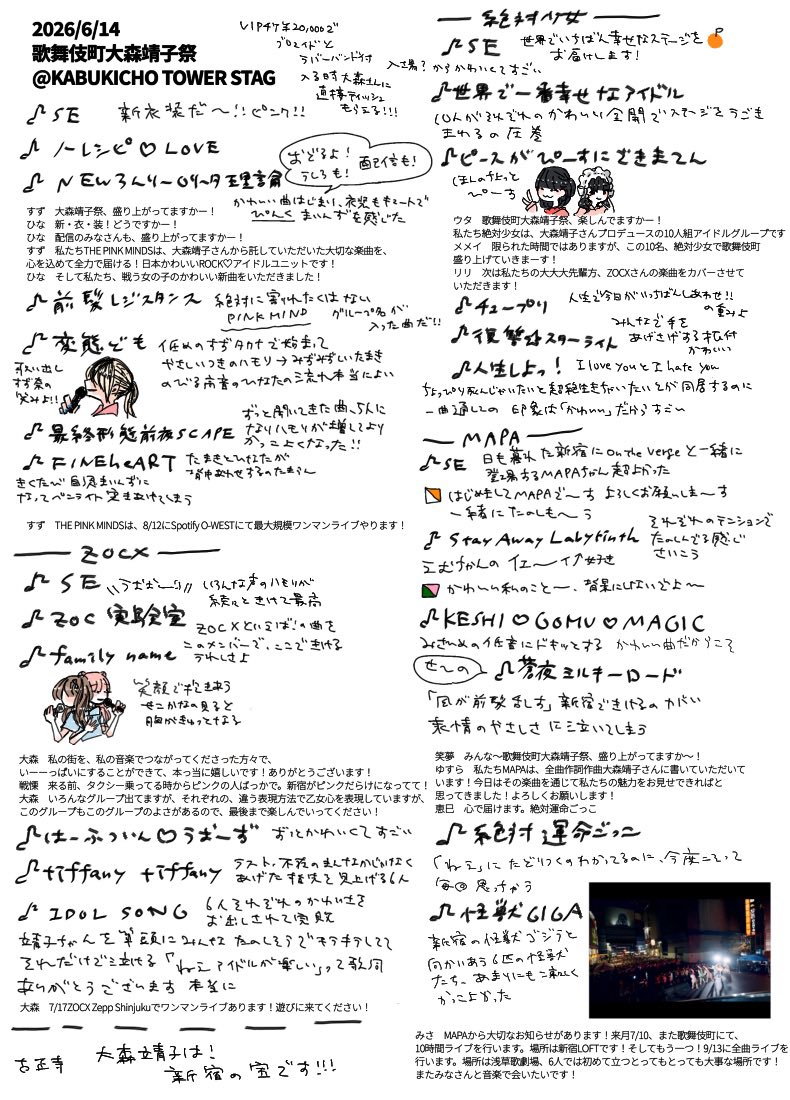 2026/6/14
歌舞伎町大森靖子祭
@KABUKICHO TOWER STAG
VIPチケ¥20,000で
ブロマイドと
ラバーバンド付
入る時大森さんに
直接ティッシュ
もらえる!!!
♪ SE 新衣装だ〜!!ピンク!!
♪ ノーレシピ♡LOVE
♪ NEWろんりーロリータ理論
おどるよ! 配信も!
うしろも!
かわいい曲はじまり、衣装もキュートで
ぴんくまいんずを感じた
すず 大森靖子祭、盛り上がってますかー!
ひな 新・衣・装!どうですかー!
ひな 配信のみなさんも、盛り上がってますかー!
すず 私たちTHE PINK MINDSは、大森靖子さんから託していただいた大切な楽曲を、
心を込めて全力で届ける!日本かわいいROCK♡アイドルユニットです!
ひな そして私たち、戦う女の子のかわいい新曲をいただきました!
♪ 前髪レジスタンス 絶対に害れたくはない
PINK MIND グループ名が
入った曲だ!!
♪ 変態ども 低めのすずタカナで始まって
やさしいつきのハモリ→みぢみぢいたまき
のびる高音のひなたの流れ本当によい
歌い出し
すず奈の
笑みよ!!
♪ 最終形態前夜SCAPE
ずっと聞いてきた曲、5人に
なりハモリが増してより
かっこよくなった!!
♪ FINEheART たまきとひなたが
背中あわせするのたまらん
すず THE PINK MINDSは、8/12にSpotify O-WESTにて最大規模ワンマンライブやります!
ZOCX
♪ SE うおお〜!! いろんな声のハモリが
続々ときけて最高
♪ ZOC実験室
ZOCXといえば!の曲を
このメンバーで、ここできける
うれしさよ
♪ family name
笑顔で抱き合う
せこかなの見ると
胸がぎゅっとなる
大森 私の街を、私の音楽でつながってくださった方々で、
いーーっぱいにすることができて、本っ当に嬉しいです!ありがとうございます!
戦慄 来る前、タクシー乗ってる時からピンクの人ばっかで。新宿がピンクだらけになってて!
大森 いろんなグループ出てますが、それぞれの、違う表現方法で乙女心を表現していますが、
このグループもこのグループのよさがあるので、最後まで楽しんでいってください!
♪ はーふついん♡うぉーず ずっとかわいくてすごい
♪ tiffany tiffany
あげた指先を見上げる6人
♪ IDOL SONG 6人それぞれのかわいさを
お出しされて完敗
靖子ちゃんを筆頭にみんなたのしそうでキラキラしてて
それだけで泣ける「ねえアイドルが楽しい」って歌詞
ありがとうございます 本当に
大森 7/17ZOCX Zepp Shinjukuでワンマンライブあります!遊びに来てください!
古正寺 大森靖子は!
新宿の宝です!!!
絶対少女
♪ SE 世界でいちばん幸せなステージを
お届けします!
入場?からかわいくてすごい
♪ 世界で一番幸せなアイドル
10人がそれぞれのかわいい全開でステージをうごき
まわるの圧巻
♪ ピースがぴーすにできまてん
ほんのちょっと
ぴーす
ウタ 歌舞伎町大森靖子祭、楽しんでますかー!
私たち絶対少女は、大森靖子さんプロデュースの10人組アイドルグループです
メメイ 限られた時間ではありますが、この10名、絶対少女で歌舞伎町
盛り上げていきまーす!
リリ 次は私たちの大大大先輩方、ZOCXさんの楽曲をカバーさせて
いただきます!
♪ チュープリ 人生で今日がいっちばんしあわせ!!
の重みよ
♪ 復讐☆スターライト みんなで手を
あげさげする振付
かわいい
♪ 人生しよっ! I love you と I hate you
ちょっぴり死んじゃいたいと超絶生きちゃいたいとが同居するのに
一曲通しての印象は「かわいい」だからすごい
MAPA
♪ SE 日も暮れた新宿にOn the Vergeと一緒に
登場するMAPAちゃん超よかった
はじめましてMAPAで〜す よろしくお願いしま〜す
一緒にたのしも〜う
♪ Stay Away Labyrinth それぞれのテンションで
たのしんでる感じ
さいこう
えむかんのイェーイ!が好き
かわいい私のこと〜、背景にしないでよ〜
♪ KESHI♡GOMU♡MAGIC
みさきめの低音にドキッとする かわいい曲だからこそ
せ〜の ♪ 蒼夜ミルキーロード
「風が前髪乱した」新宿できけるのヤバい
表情のやさしさに泣いてしまう
笑夢 みんな〜歌舞伎町大森靖子祭、盛り上がってますか〜!
ゆすら 私たちMAPAは、全曲作詞作曲大森靖子さんに書いていただいて
います!今日はその楽曲を通じて私たちの魅力をお見せできればと
思ってきました!よろしくお願いします!
恵巳 心で届けます。絶対運命ごっこ
♪ 絶対運命ごっこ
「ねえ」にたどりつくのわかってるのに、今度こそって
毎回思っちゃう
♪ 怪獣GIGA
新宿の怪獣ゴジラと
向かいあう6匹の怪獣
たち、あまりにも
かっこよかった
みさ MAPAから大切なお知らせがあります!来月7/10、また歌舞伎町にて、
10時間ライブを行います。場所は新宿LOFTです!そしてもう一つ!9/13に全曲ライブを
行います。場所は浅草歌劇場、6人では初めて立つとってもとっても大事な場所です!
またみなさんと音楽で会いたいです!